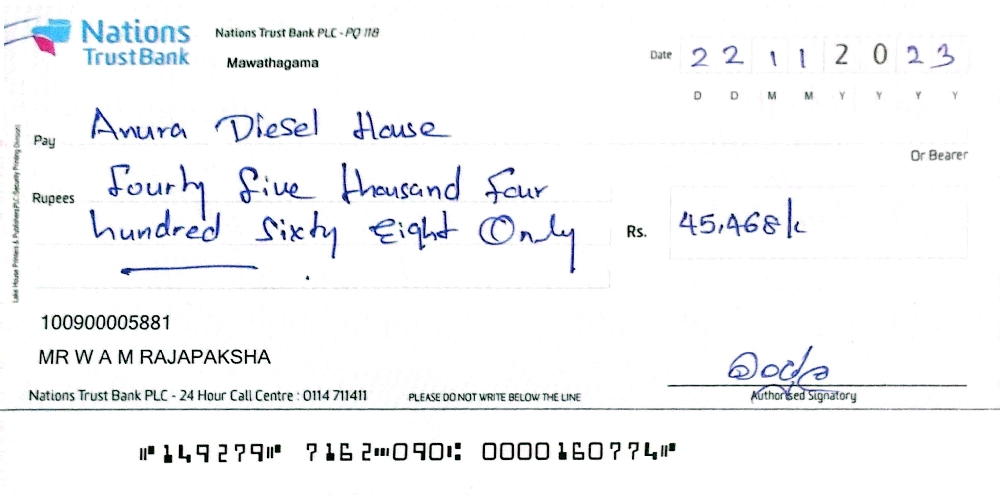 Nations
TrustBank
Nations Trust Bank PLC - PQ 118
Mawathagama
Date 2 2 1 1 2 0 2 3
D D M M Y Y Y Y
Pay Anura Diesel House
Or Bearer
Rupees Fourty five thousand four
hundred Sixty Eight Only
Rs. 45,468/-
Lake House Printers & Publishers PLC (Security Printing Division)
100900005881
MR W A M RAJAPAKSHA
Authorised Signatory
Nations Trust Bank PLC - 24 Hour Call Centre : 0114 711411
PLEASE DO NOT WRITE BELOW THE LINE
⑈149279⑈ 7162⑉090⑆ 0000160774⑈